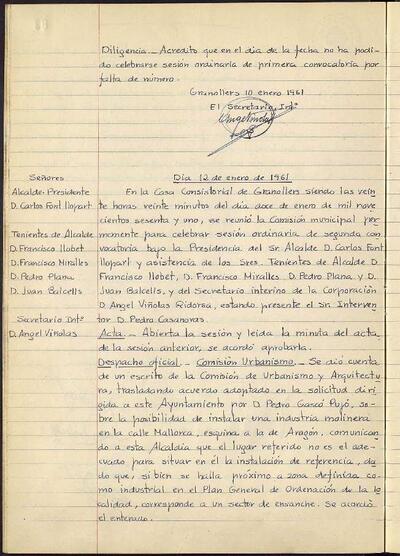 Diligencia.- Acredito que en el dia de la fecha no ha podi-
do celebrarse sesión ordinaria de primera convocatoria por
falta de número.
Granollers 10 enero 1961
El Secretario Intº
Señores
Alcalde-Presidente
D. Carlos Font Llopart
Tenientes de Alcalde
D. Francisco Llobet
D. Francisco Miralles
D. Pedro Plana
D. Juan Balcells
Secretario Intº
D. Angel Viñolas
Dia 12 de enero de 1961
En la Casa Consistorial de Granollers siendo las vein
te horas veinte minutos del dia doce de enero de mil nove
cientos sesenta y uno, se reunió la Comisión municipal per
manente para celebrar sesión ordinaria de segunda con
vocatoria bajo la Presidencia del Sr Alcalde D. Carlos Font
Llopart y asistencia de los Sres. Tenientes de Alcalde D.
Francisco Llobet, D. Francisco Miralles D. Pedro Plana, y D.
Juan Balcells, y del Secretario interino de la Corporación
D. Angel Viñolas Ridorsa, estando presente el Sr. Interven
tor D. Pedro Casanovas.
Acta.- Abierta la sesión y leida la minuta del acta
de la sesión anterior, se acordó aprobarla.
Despacho oficial.- Comisión Urbanismo.- Se dió cuenta
de un escrito de la Comisión de Urbanismo y Arquitectu
ra, trasladando acuerdo adoptado en la solicitud diri
gida a este Ayuntamiento por D. Pedro Gascó Pujó, so-
bre la posibilidad de instalar una industria molinera
en la calle Mallorca, esquina a la de Aragón, comunican
do a esta Alcaldia que el lugar referido no es el ade-
cuado para situar en él la instalación de referencia, da
do que, si bien se halla próximo a zona definida co-
mo industrial en el Plan General de Ordenación de la lo
calidad, corresponde a un sector de ensanche. Se acordó
el enterado.